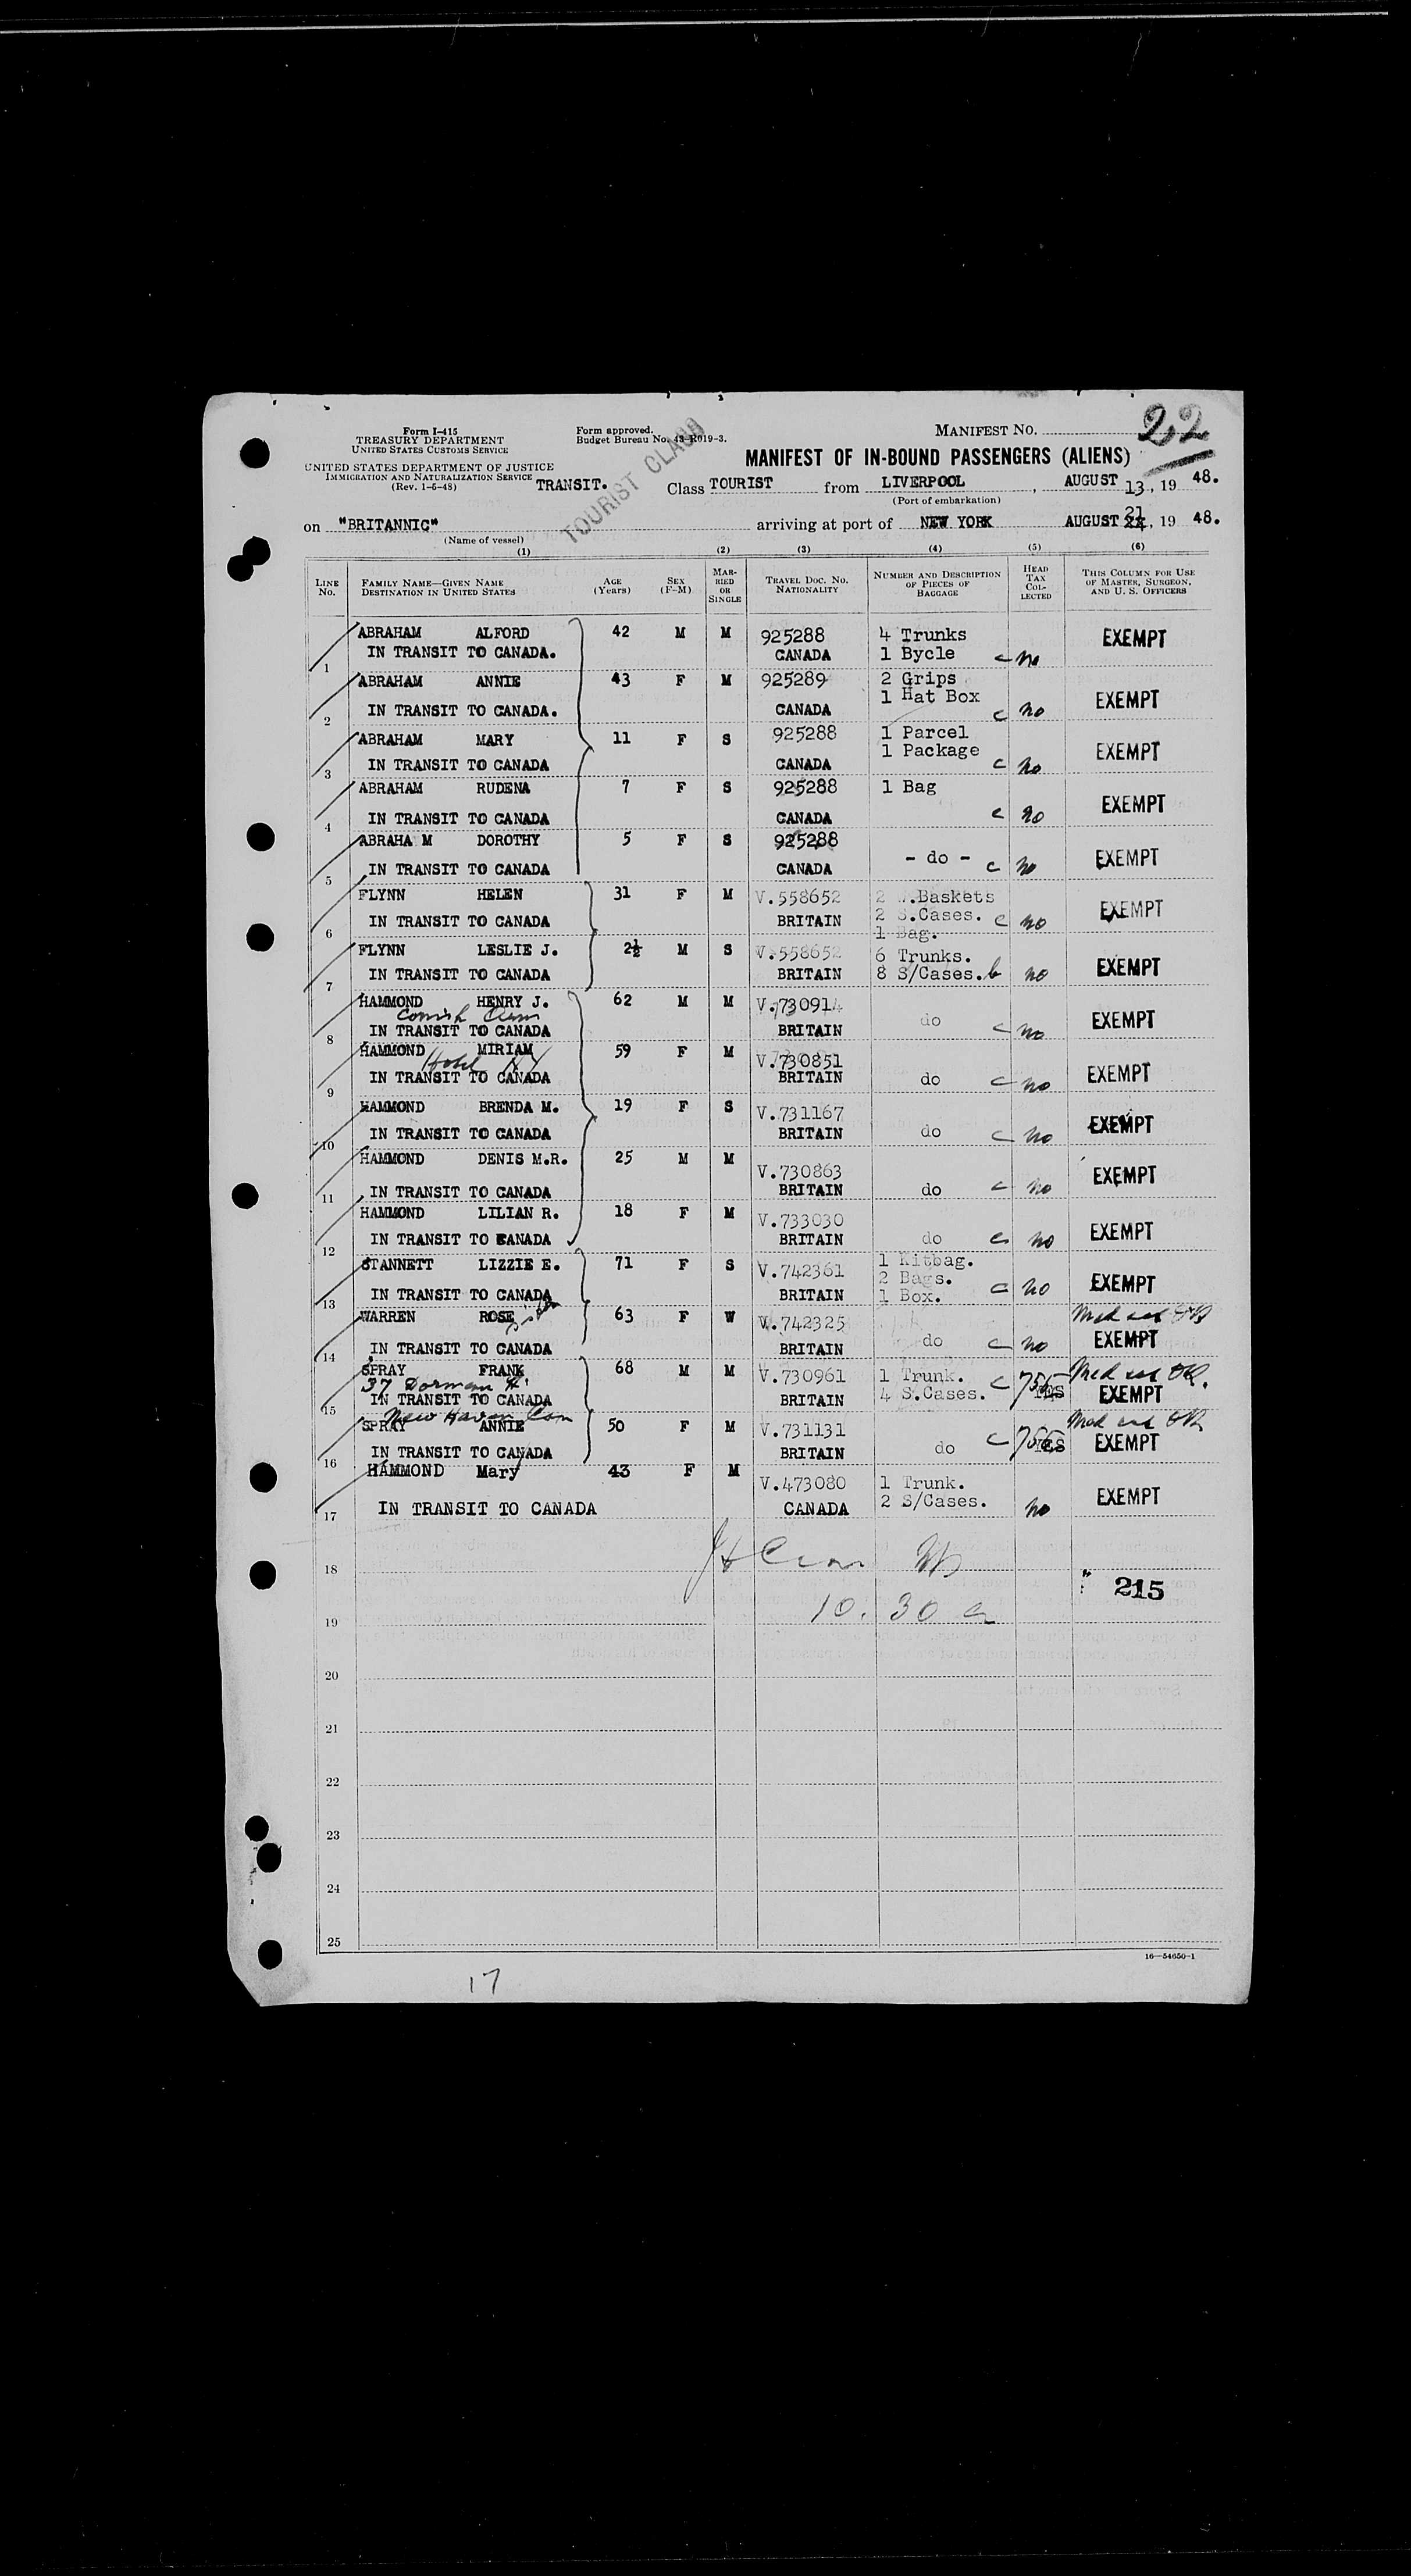 22
Form I-415
TREASURY DEPARTMENT
UNITED STATES CUSTOMS SERVICE
Form approved.
Budget Bureau No. 43-R019-3.
MANIFEST NO.
UNITED STATES DEPARTMENT OF JUSTICE
IMMIGRATION AND NATURALIZATION SERVICE
(Rev. 1-5-48)
TRANSIT.
TOURIST CLASS
MANIFEST OF IN-BOUND PASSENGERS (ALIENS)
Class TOURIST from LIVERPOOL, AUGUST 13, 19 48.
(Port of embarkation)
on "BRITANNIC" arriving at port of NEW YORK AUGUST 21, 19 48.
(Name of vessel)
(1) (2) (3) (4) (5) (6)
LINE No. FAMILY NAME—GIVEN NAME DESTINATION IN UNITED STATES AGE (Years) SEX (F-M) MARRIED OR SINGLE TRAVEL DOC. NO. NATIONALITY NUMBER AND DESCRIPTION OF PIECES OF BAGGAGE HEAD TAX COLLECTED THIS COLUMN FOR USE OF MASTER, SURGEON, AND U. S. OFFICERS
ABRAHAM ALFORD 42 M M 925288 4 Trunks EXEMPT
1 IN TRANSIT TO CANADA. CANADA 1 Bycle c no
ABRAHAM ANNIE 43 F M 925289 2 Grips
1 Hat Box EXEMPT
2 IN TRANSIT TO CANADA. CANADA c no
ABRAHAM MARY 11 F S 925288 1 Parcel
1 Package EXEMPT
3 IN TRANSIT TO CANADA CANADA c no
ABRAHAM RUDENA 7 F S 925288 1 Bag EXEMPT
4 IN TRANSIT TO CANADA CANADA c no
ABRAHA M DOROTHY 5 F S 925288
5 IN TRANSIT TO CANADA CANADA - do - c no EXEMPT
FLYNN HELEN 31 F M V.558652 2 .Baskets
6 IN TRANSIT TO CANADA BRITAIN 2 S.Cases. c no EXEMPT
1 Bag.
FLYNN LESLIE J. 2½ M S V.558652 6 Trunks.
7 IN TRANSIT TO CANADA BRITAIN 8 S/Cases. no EXEMPT
HAMMOND HENRY J. 62 M M V.730914
8 IN TRANSIT TO CANADA BRITAIN do c no EXEMPT
HAMMOND MIRIAM 59 F M V.730851
Hotel NY
9 IN TRANSIT TO CANADA BRITAIN do c no EXEMPT
HAMMOND BRENDA M. 19 F S V.731167
10 IN TRANSIT TO CANADA BRITAIN do c no EXEMPT
HAMMOND DENIS M.R. 25 M M V.730863
11 IN TRANSIT TO CANADA BRITAIN do c no EXEMPT
HAMMOND LILIAN R. 18 F M V.733030
12 IN TRANSIT TO CANADA BRITAIN do c no EXEMPT
STANNETT LIZZIE E. 71 F S V.742361 1 Kitbag.
2 Bags.
13 IN TRANSIT TO CANADA BRITAIN 1 Box. c no EXEMPT
WARREN ROSE 63 F W V.742325
14 IN TRANSIT TO CANADA BRITAIN do c no EXEMPT
SPRAY FRANK 68 M M V.730961 1 Trunk.
37 Dorman
15 IN TRANSIT TO CANADA BRITAIN 4 S.Cases. c EXEMPT
New Haven Con
SPRAY ANNIE 50 F M V.731131
16 IN TRANSIT TO CANADA BRITAIN do c EXEMPT
HAMMOND Mary 43 F M V.473080 1 Trunk.
17 IN TRANSIT TO CANADA CANADA 2 S/Cases. no EXEMPT
18
215
10.30 a
19
20
21
22
23
24
25
16—54650-1
17